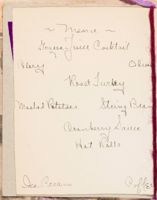 ~ Menu ~
Juice Cocktail
Celery Olives
Roast Turkey
Mashed Potatoes String Bea
Cranberry Sauce
Hot Rolls
Ice Cream Coffee